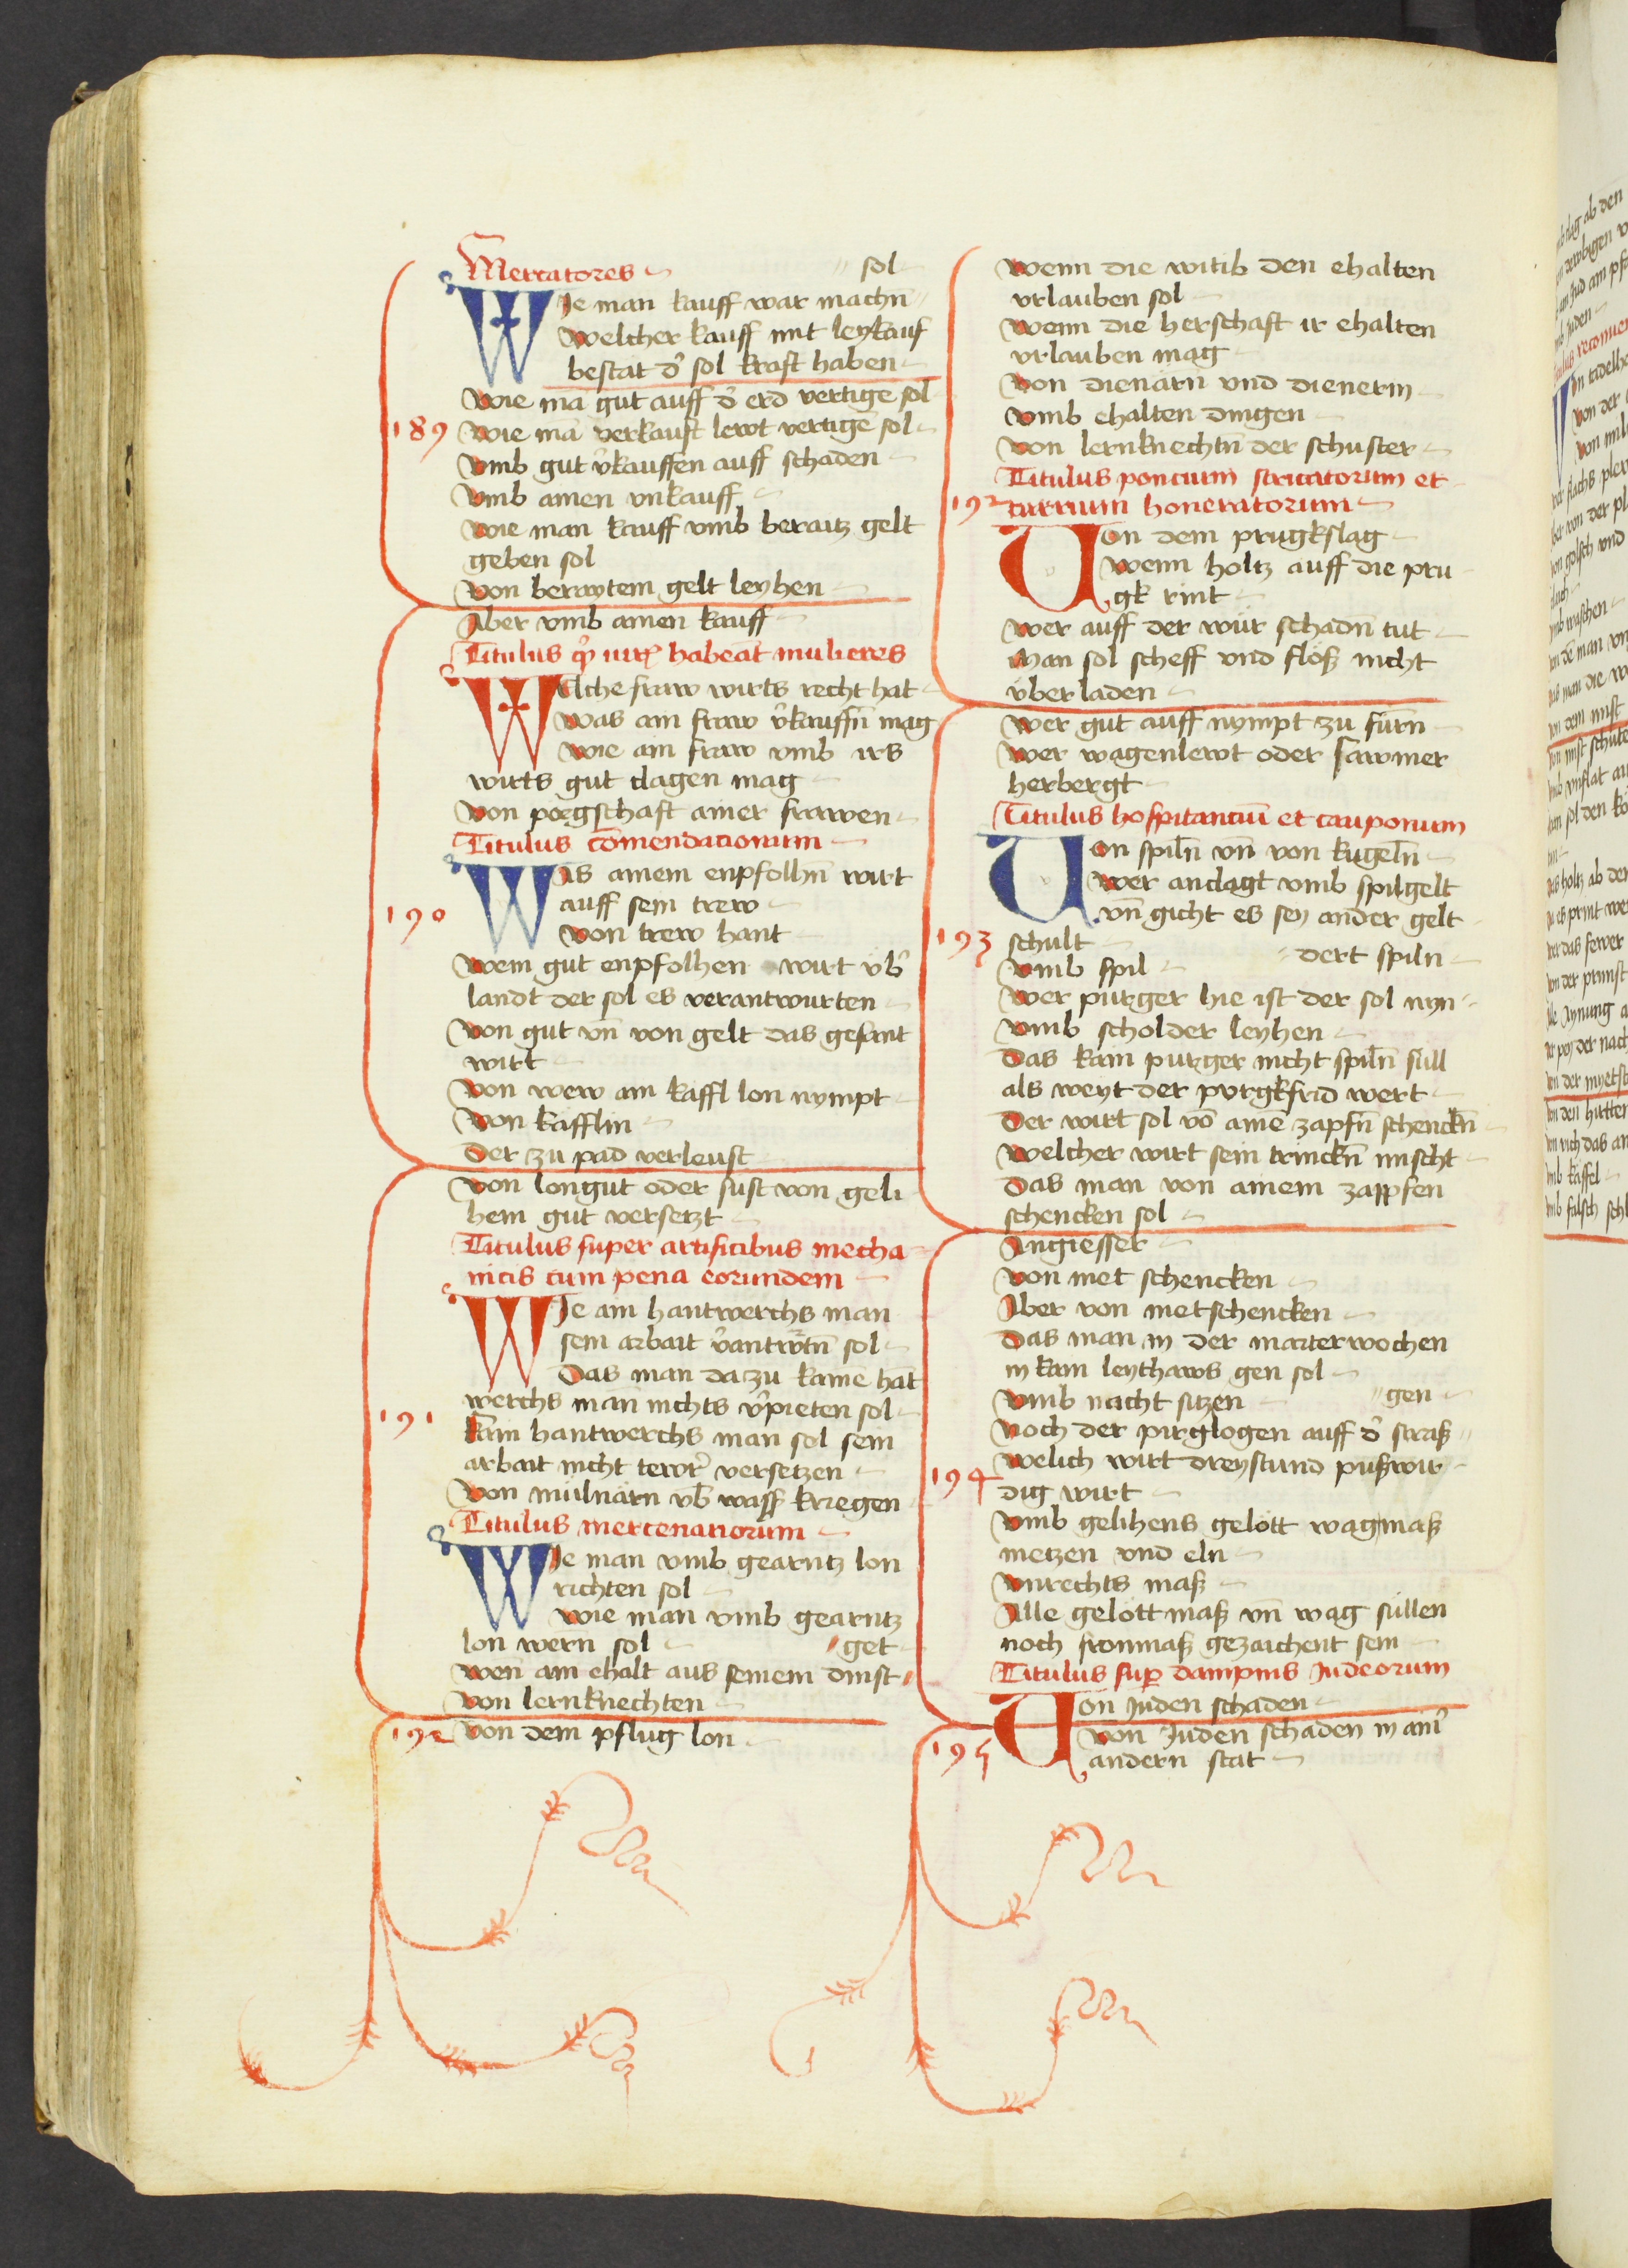 Mercatores
sol
WIe man kauff war machn̄
Welcher kauff mit leykauf
bestat d̕ sol kraft haben
189
Wie mā gut auff d̕ erd vertigē sol
Wie mā verkauft lewt vertigē sol
Vmb gut v̕kauffen auff schaden
Vmb ainen vnkauff
Wie man kauff vmb beraitz gelt
geben sol
Von beraytem gelt leyhen
Aber vmb ainen kauff
Titulus habeāt mulieres
WElche fraw wirts recht hat
Was ain fraw v̕kauffn̄ mag
Wie ain fraw vmb irs
wirts gut clagen mag
Von porgschaft ainer frawen
Titulus cōmendacionum
190
WAs ainem enpfolhn̄ wirt
auff sein trew
Von trew hant
Wem gut enpfolhen wirt vb̕
landt der sol es verantwurten
Von gut vn̄ von gelt das gesant
wirt
Von wew ain kaffl lon nympt
Von kafflin
Der zu pad verleust
Von longut oder sust von geli
hem gut versetzt
Titulus super artificibus mecha
nicis cum pena eorundem
191
WIe ain hantwerchs man
sein arbait v̕antwrtn̄ sol
Das man da zu kainē hāt
werchs man nichts v̕pieten sol
Kain hantwerchs man sol sein
arbait nicht tewr̕ versetzen
Von mulnärn vb̕ wass̕ kriegen
Titulus mercenariorum
WIe man vmb gearntz lon
richten sol
Wie man vmb gearntz
lon wern sol
get
Wen̄ ain ehalt aus seinem dinst
Von lernknechten
192
Von dem pflug lon
Wenn die witib den ehalten
vrlauben sol
Wenn die herschaft ir ehalten
vrlauben mag
Von dienärn vnd dienerin
Vmb ehalten dingen
Von lernknechtn̄ der schuster
Titulus poncium stricatorum et
192
curruum honeratorum
VOn dem prugkslag
Wenn holtz auff die pru
gk rint
Wer auff der wür schadn̄ tut
Man sol scheff vnd flöß nicht
vberladen
Wer gut auff nympt zu furn̄
Wer wagenlewt oder sawmer
herbergt
Titulus hospitanciū et cauponum
VOn spiln̄ vn̄ von kugeln̄
Wer anclagt vmb spilgelt
vn̄ gicht es sey ander gelt
193
schult
dert spiln
Vmb spil
Wer purger hie ist der sol nyn
Vmb scholder leyhen
Das kain purger nicht spiln̄ sull
als weyt der purgkfrid wert
Der wirt sol vō ainē zapfn̄ schenckn̄
Welcher wirt sein trinckn̄ mischt
Das man von ainem zappfen
schencken sol
Angiesser
Von met schencken
Aber von metschencken
Das man in der marterwochen
in kain leythaws gen sol
Vmb nacht sitzen
gen
Noch der pirglogen auff d̕ straß
194
Welich wirt dreystund pußwir
dig wirt
Vmb gelihens gelott wag maß
metzen vnd eln
Vnrechts maß
Alle gelott maß vn̄ wag sullen
noch fronmaß gezaichent sein
Titulus sup̱ dampnis Judeorum
195
VOn Juden schaden
Von Juden schaden in ain̕
andern stat